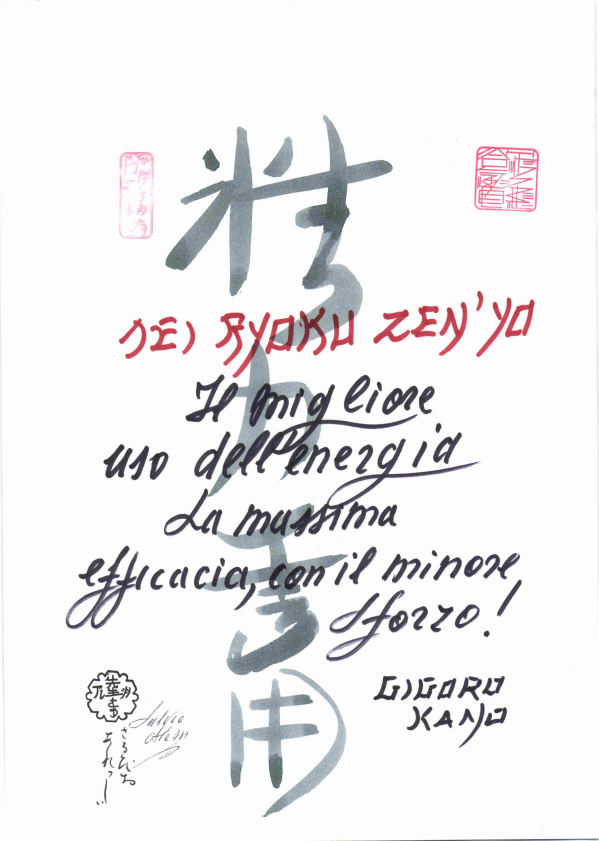 精力善用
SEI RYOKU ZEN'YO
Il migliore
uso dell'energia
La massima
efficacia, con il minore
sforzo!
GIGORO
KANO